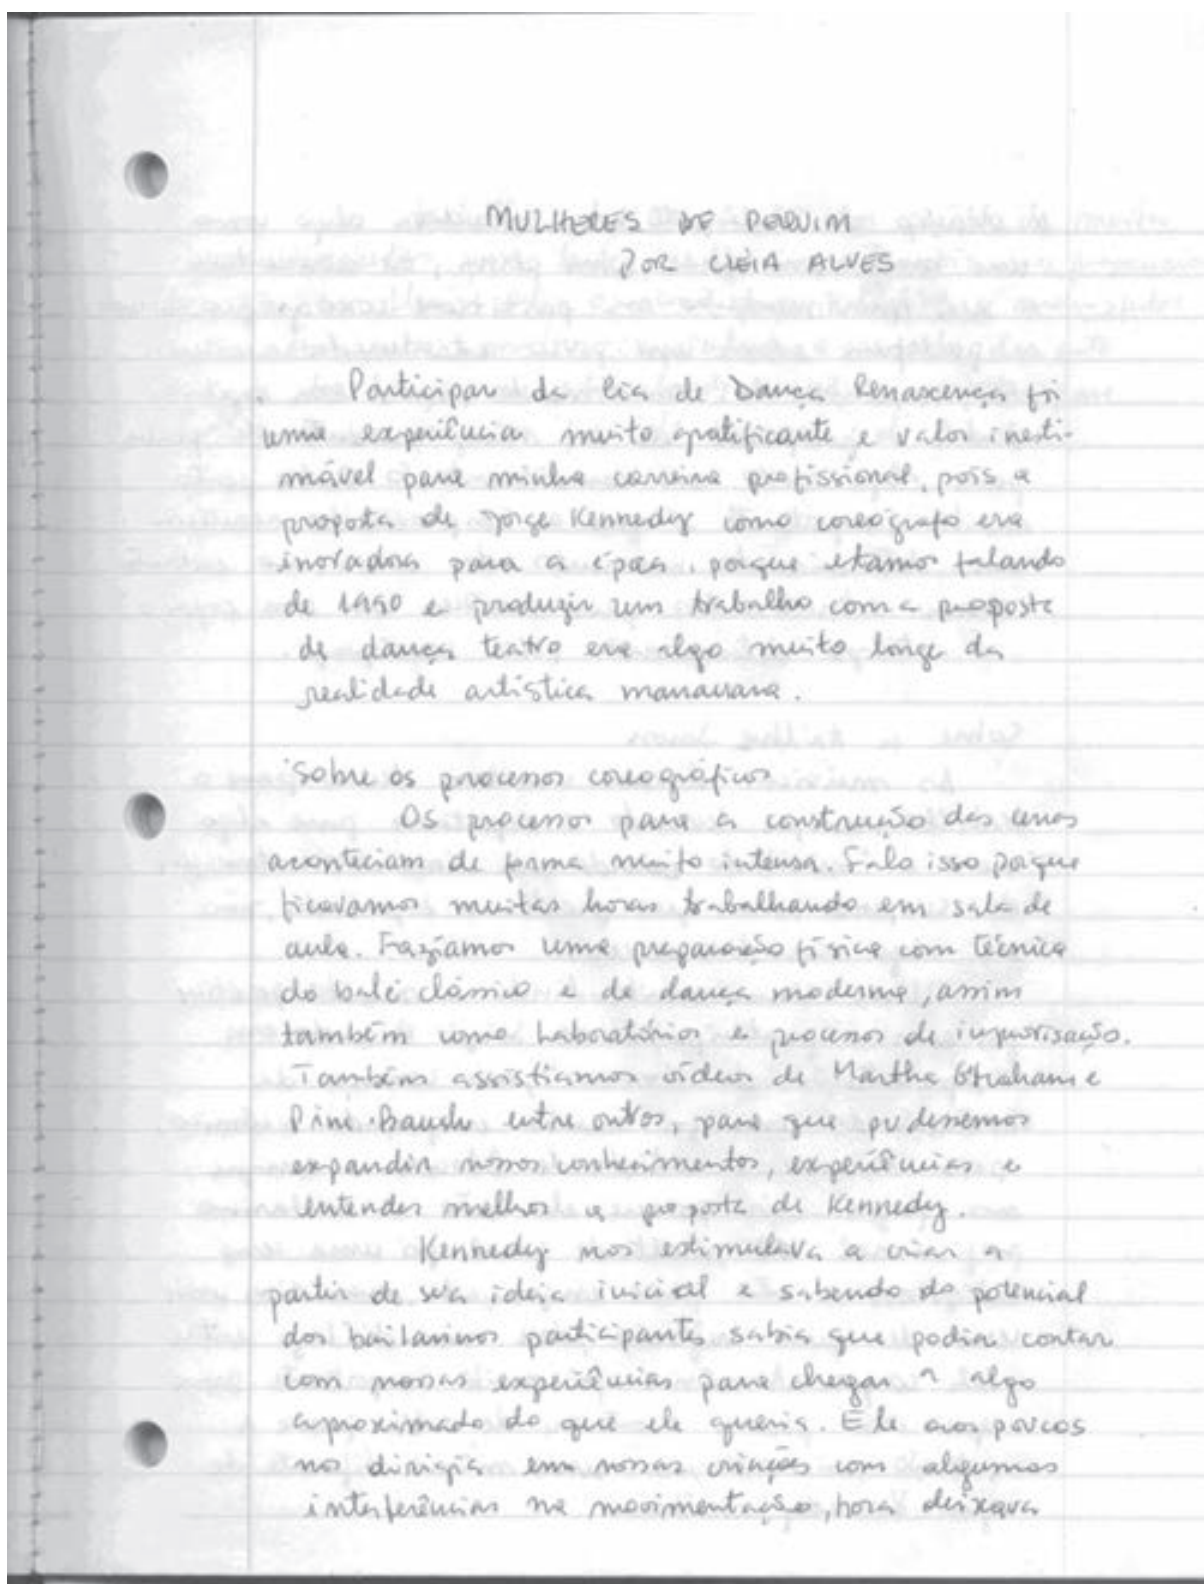 MULHERES DE PEQUIM
POR CLÉIA ALVES
Participar da Cia de Dança Renascença foi
uma experiência muito gratificante e valor inesti-
mável para minha carreira profissional, pois a
proposta de Jorge Kennedy como coreógrafo era
inovadora para a época, porque estamos falando
de 1990 e produzir um trabalho com a proposta
de dança teatro era algo muito longe da
realidade artística manauara.
Sobre os processos coreográficos
Os processos para a construção das cenas
aconteciam de forma muito intensa. Falo isso porque
ficavamos muitas horas trabalhando em sala de
aula. Fazíamos uma preparação física com técnica
do balé clássico e de dança moderna, assim
também como laboratórios e processos de improvisação.
Também assistiamos vídeos de Martha Graham e
Pina Bausch entre outros, para que pudessemos
expandir nossos conhecimentos, experiências e
entender melhor a proposta de Kennedy.
Kennedy nos estimulava a criar a
partir de sua ideia inicial e sabendo do potencial
dos bailarinos participantes sabia que podia contar
com nossas experiências para chegar a algo
aproximado do que ele queria. Ele aos poucos
nos dirigia em nossas criações com algumas
interferências na movimentação, hora deixava